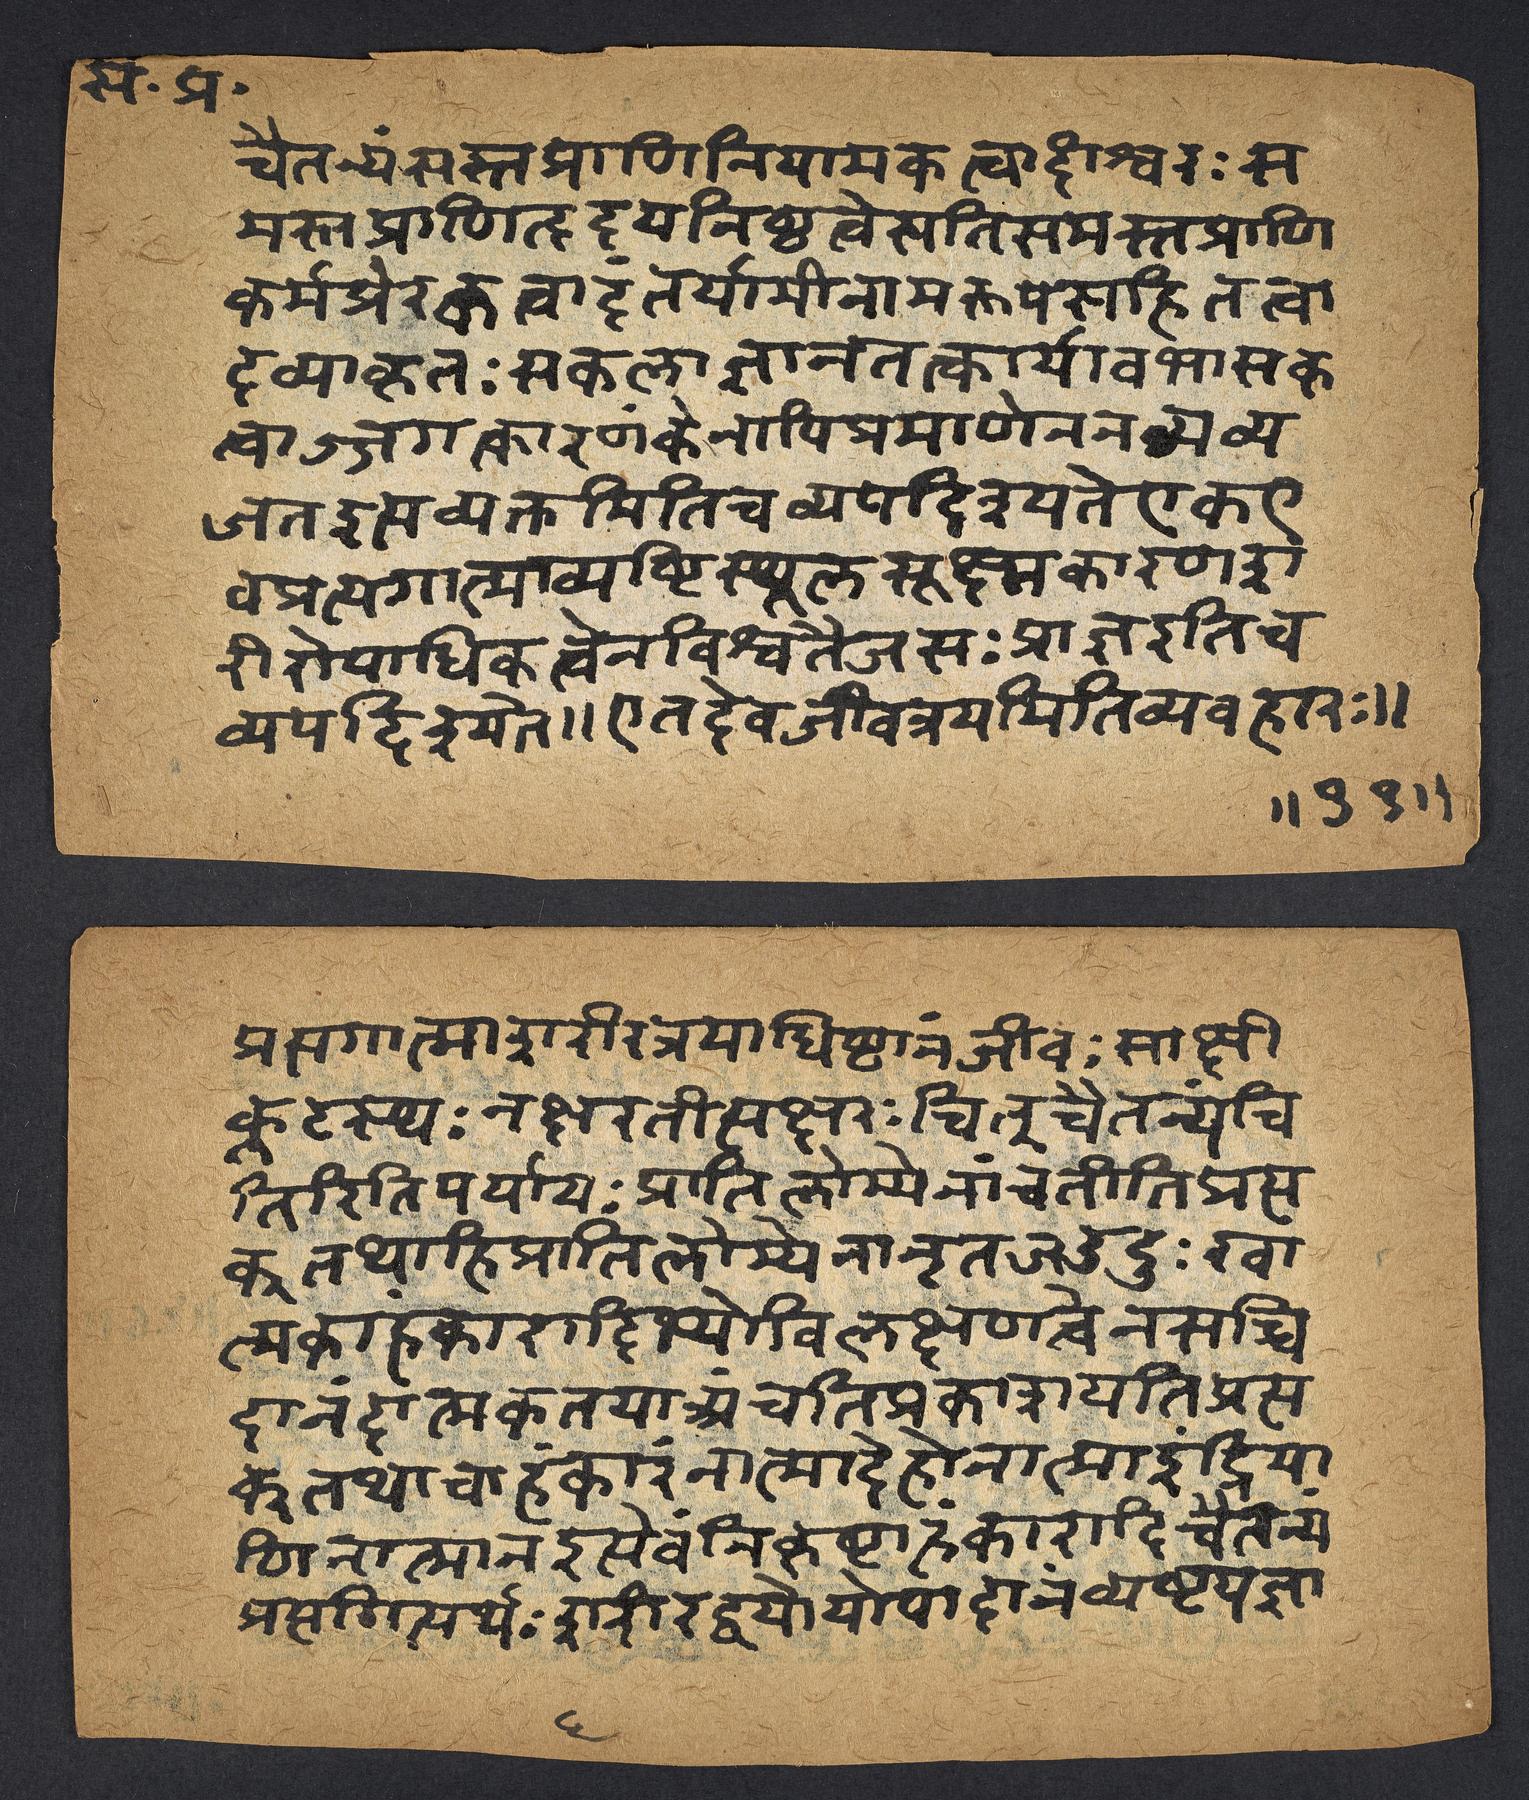 स॰ प्र॰
चैतन्यंसस्तप्राणिनियामकत्वादीश्वरः स
मस्तप्राणिहृदयनिष्ठत्वेसतिसमस्तप्राणि
कर्मप्रेरकत्वादंतर्यामीनामरूपरहितत्वा
दव्याकृतः सकलाज्ञानतत्कार्यावभासक
त्वाज्जगत्कारणंकेनापिप्रमाणेनन व्य
जतइत्यव्यक्तमितिचव्यपदिश्यतेएकए
वप्रत्यगात्माव्यष्टिस्थूलसूक्ष्मकारणशा
रीरोपाधिकत्वेनविश्वतैजसः प्राज्ञइतिच
व्यपदिश्यते॥एतदेवजीवत्रयमितिव्यवहारः॥
॥९९॥
प्रत्यगात्माशरीरत्रयाधिष्ठानंजीवः साक्षी
कूटस्थः नक्षरतीत्यक्षरः चित्चैतन्यंचि
तिरितिपर्यायः प्रातिलोम्येनांचतीतिप्रत्य
क्तथाहिप्रातिलोम्येनानृतजडदुःखा
त्मकाहंकारादिभ्योविलक्षणत्वेनसच्चि
दानंदात्मकतया अंचतिप्रकाशयतिप्रत्य
क्तथाचाहंकारंनात्मादेहोनात्माइंद्रिया
णिनात्मानइत्येवंनिकृष्टाहंकारादिचैतन्यं
प्रत्यगित्यर्थः शरीरद्वयोयोपादानंव्यष्ट्यज्ञा
६